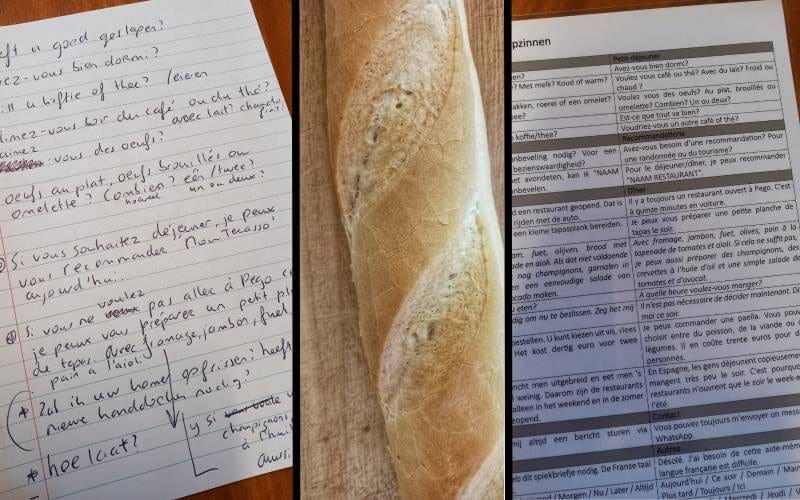 eft u goed geslapen?
ez-vous bien dormi?
ill u koffie of thee? /eieren
aimez-vous boir du café ou du thé?
avec lait? chaud
vous des oeufs?
oeufs au plat, oeufs brouillés ou
omelette? Combien? één/twee?
un ou deux?
si vous souhaitez déjeuner, je peux
vous recommander 'Mom Tecasso'
aujourd'hui.
voulez
si vous ne pas aller à Pego
je peux vous préparer un petit
de tapas. avec fromage, jambon, fuet,
pain à l'aioli
Zal ik uw kamer opfrissen? heeft
nieuwe handdoeken nodig?
hoe laat?
y si
champignons
à l'huil
pzinnen
Petit-déjeuner
en?
Avez-vous bien dormi?
? Met melk? Koud of warm?
Voulez vous café ou thé? Avec du lait? Froid ou
chaud ?
akken, roerei of een omelet?
Voulez vous des oeufs? Au plat, brouillés ou
wee?
omelette? Combien? Un ou deux?
Est-ce que tout va bien?
koffie/thee?
Voudriez-vous un autre café of thé?
Recommandations
anbeveling nodig? Voor een
bezienswaardigheid?
Avez-vous besoin d'une recommandation? Pour
une randonnée ou du tourisme?
et avondeten, kan ik "NAAM
anbevelen.
Pour le déjeuner/dîner, je peux recommander
"NAAM RESTAURANT".
Dîner
d een restaurant geopend. Dat is
rijden met de auto.
Il y a toujours un restaurant ouvert à Pego. C'est
à quinze minutes en voiture.
een kleine tapasplank bereiden.
Je peux vous préparer une petite planche de
tapas le soir.
am, fuet, olijven, brood met
de en aioli. Als dat niet voldoende
nog champignons, garnalen in
een eenvoudige salade van
ocado maken.
Avec fromage, jambon, fuet, olives, pain à la
tapenade de tomates et aioli. Si cela ne suffit pas,
je peux aussi préparer des champignons, des
crevettes à l'huile d'ail et une simple salade de
tomates et d'avocat.
u eten?
A quelle heure voulez-vous manger?
dig om nu te beslissen. Zeg het mij
Il n'est pas nécessaire de décider maintenant. Di
moi ce soir.
bestellen. U kunt kiezen uit vis, vlees
Het kost dertig euro voor twee
Je peux commander une paella. Vous pouv
choisir entre du poisson, de la viande ou d
légumes. Il en coûte trente euros pour d
personnes.
richt men uitgebreid en eet men 's
l weinig. Daarom zijn de restaurants
alleen in het weekend en in de zomer
eopend.
En Espagne, les gens déjeunent copieusemen
mangent très peu le soir. C'est pourquo
restaurants n'ouvrent que le soir le week-e
l'été.
Contact
mij altijd een bericht sturen via
Vous pouvez toujours m'envoyer un messa
WhatsApp.
Autres
eb dit spiekbriefje nodig. De Franse taal
Désolé. J'ai besoin de cette aide-mém
langue française est difficile.
nd / Morgen / Nu / Later / Altijd
Aujourd'hui / Ce soir / Demain / Main
Plus tard / Toujours / Ici